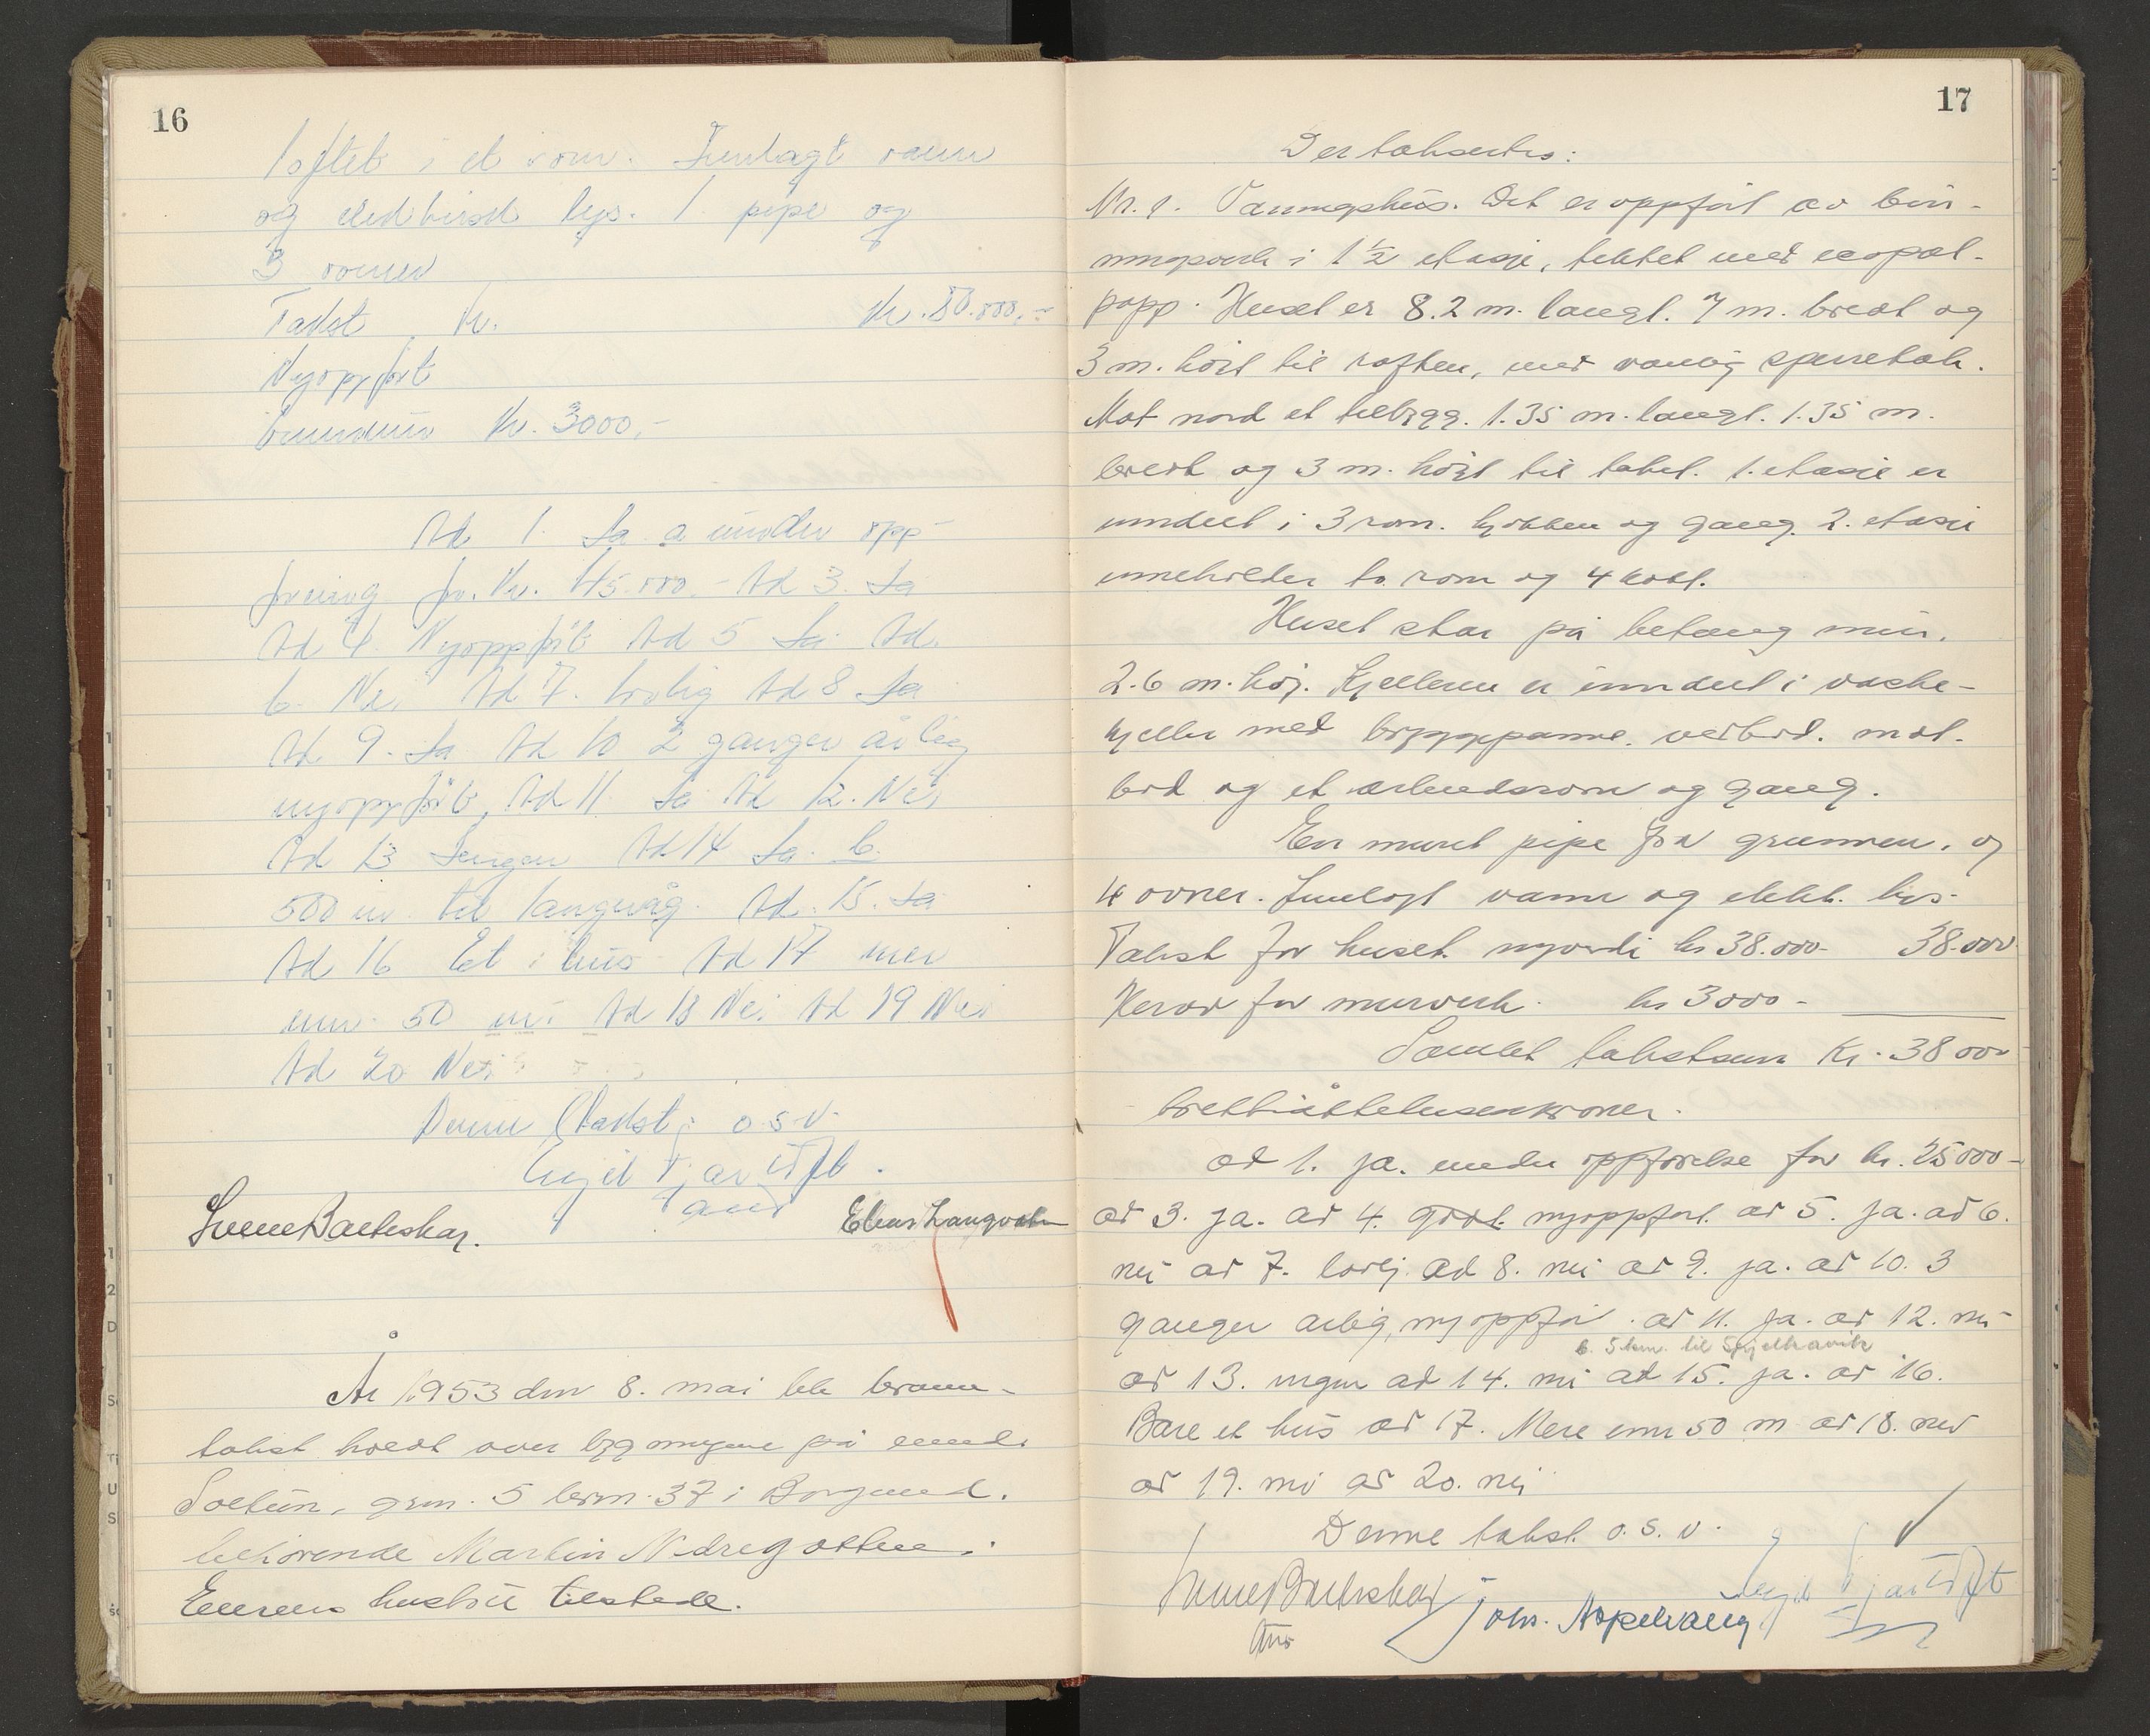 16
loftet i et rom. Innlagt vann
og elektrisk lys. 1 pipe og
3 ovner
Takst Kr. Kr. 80.000,-
Nyoppført
Grunnmur Kr. 3000,-
Ad 1. Ja a under opp-
føring for Kr. 45.000.- Ad 3. Ja
Ad 4. Nyoppført Ad 5 Ja Ad
6. Nei Ad 7. lovlig Ad 8 Ja
Ad 9. Ja Ad 10 2 ganger årlig
nyoppført, Ad 11 Ja Ad 12. Nei
Ad 13 Ingen Ad 14 Ja. b.
500 m. til Langevåg. Ad. 15. Ja
Ad 16 Et hus Ad 17 mer
enn 50 m. Ad 18 Nei Ad 19 Nei
Ad 20 Nei
Denne takst o.s.v.
Elias Langvatn
År 1953 den 8. mai ble brann-
takst holdt over bygningene på eiend.
Soltun, grn. 5 brn. 37 i Borgund.
tilhørende Martin Nedregotten.
Eierens hustru tilstede.
17
Der takseres:
Nr. 1. Våningshus. Det er oppført av bin-
ningsverk i 1 1/2 etasje, tekket med
papp. Huset er 8.2 m. langt. 7 m. bredt og
3 m. høit til raften, med vanlig sperretak.
Mot nord et tilbygg. 1.35 m. langt. 1.35 m.
bredt og 3 m. høit til taket. 1. etasje er
inndelt i 3 rom. kjøkken og gang. 2. etasje
inneholder to rom og 4 kott.
Huset står på betong mur.
2.6 m. høj. Kjelleren er inndelt i vaske-
kjeller med bryggepanne. vedbod. mat-
bod og et arbeidsrom og gang.
En muret pipe fra grunnen. og
4 ovner. Innlagt vann og elekt. lys.
Takst for huset. nyverdi kr 38.000- 38.000
Herav for murverk. kr 3000-
Samlet takstsum Kr. 38000
trettiåttetusenkroner.
ad 1. ja. under oppførelse for kr. 25000-
ad 3. ja. ad 4. godt. nyoppført. ad 5. ja. ad 6.
nei ad 7. lovlig. ad 8. nei ad 9. ja. ad 10. 3
ganger årlig, nyoppført. ad 11. ja. ad 12. nei
b. 5 km. til Spjelkavik
ad 13. ingen ad 14. nei ad 15. ja. ad 16.
Bare et hus ad 17. Mere enn 50 m ad 18. nei
ad 19. nei ad 20. nei
Denne takst. o.s.v.
Johs. Aspehaug